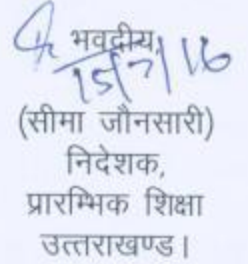 भवदीय,
15/7/16
(सीमा जौनसारी)
निदेशक,
प्रारम्भिक शिक्षा
उत्तराखण्ड।